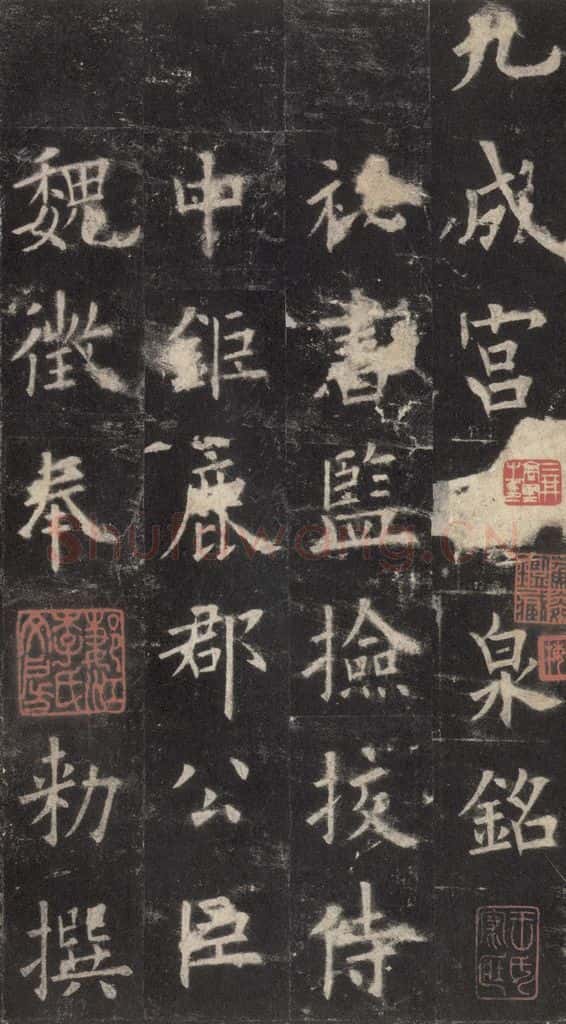 九成宮泉銘
祕書監撿挍侍
中鉅鹿郡公臣
魏徵奉勅撰
Shufawang.CN